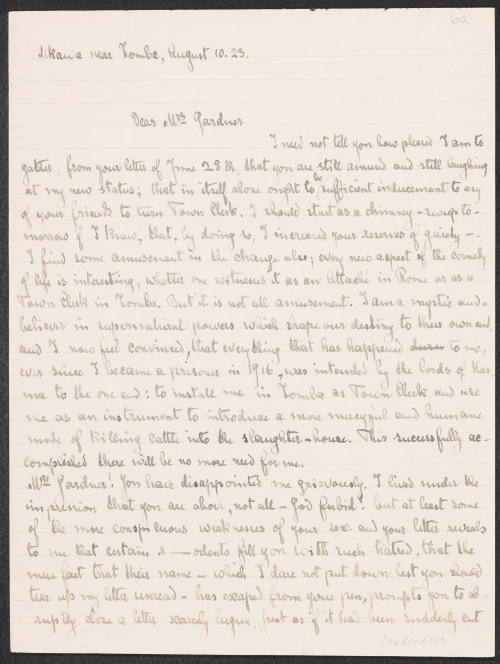 60.
Mkawa near Zomba, August 10. 23.
Dear Mrs Gardner
I need not tell you how pleased I am to
gather, from your letter of June 28th, that you are still amused and still laughing
at my new status; that in itself alone ought to be sufficient inducement to any
of your friends to turn Town Clerk. I should start as a chimney-sweep to-
morrow if I knew, that, by doing so, I increased your reserves of gaiety -.
I find some amusement in the change also; every new aspect of the comedy
of life is interesting, whether one witnesses it as an Attaché in Rome or as a
Town Clerk in Zomba. But it is not all amusement. I am a mystic and a
believer in supernatural powers which shape our destiny to their own end
and I now feel convinced, that everything that has happened to me,
ever since I became a prisoner in 1916, was intended by the lords of Kar
ma to the one end: to instale me in Zomba as Town Clerk and use
me as an instrument to introduce a more merciful and humane
mode of killing cattle into the slaughter-house. This successfully ac-
complished there will be no more need for me.
Mrs Gardner! You have disappointed me grievously. I lived under the
impression that you are above, not all - God forbid! but at least some
of the more conspicuous weaknesses of your sex. and your letter reveals
to me that certain r——odents fill you with such hatred, that the
mere fact that their name - which I dare not put down lest you should
tear up my letter unread - has escaped from your pen, prompts you to ab-
ruptly close a letter scarcely begun, just as if it had been suddenly cut